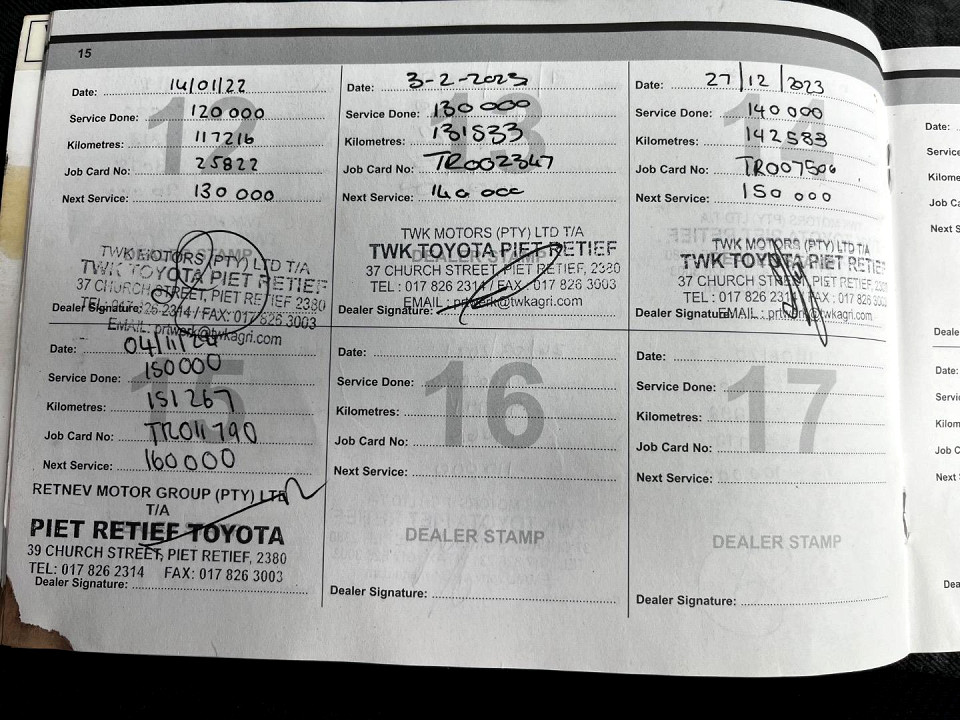 15
12
Date: 14/01/22
Service Done: 120 000
Kilometres: 117216
Job Card No: 25822
Next Service: 130 000
DEALER STAMP
TWK MOTORS (PTY) LTD T/A
TWK TOYOTA PIET RETIEF
37 CHURCH STREET, PIET RETIEF 2380
TEL : 017 826 2314 / FAX : 017 826 3003
Dealer Signature:
EMAIL : prtwerk@twkagri.com
13
Date: 3-2-2023
Service Done: 130 000
Kilometres: 131533
Job Card No: TR002347
Next Service: 140 000
DEALER STAMP
TWK MOTORS (PTY) LTD T/A
TWK TOYOTA PIET RETIEF
37 CHURCH STREET, PIET RETIEF, 2380
TEL : 017 826 2314 / FAX : 017 826 3003
EMAIL : prtwerk@twkagri.com
Dealer Signature:
14
Date: 27/12/2023
Service Done: 140 000
Kilometres: 142583
Job Card No: TR007506
Next Service: 150 000
TWK MOTORS (PTY) LTD T/A
TWK TOYOTA PIET RETIEF
37 CHURCH STREET, PIET RETIEF,
TEL : 017 826 2314 / FAX : 017 826 3003
Dealer Signature:
EMAIL : prtwerk@twkagri.com
15
Date: 04/11/
Service Done: 150000
Kilometres: 151267
Job Card No: TR011790
Next Service: 160000
RETNEV MOTOR GROUP (PTY) LTD
T/A
PIET RETIEF TOYOTA
39 CHURCH STREET, PIET RETIEF, 2380
TEL: 017 826 2314 FAX: 017 826 3003
Dealer Signature:
16
Date:
Service Done:
Kilometres:
Job Card No:
Next Service:
DEALER STAMP
Dealer Signature:
17
Date:
Service Done:
Kilometres:
Job Card No:
Next Service:
DEALER STAMP
Dealer Signature:
Date:
Service
Kilome
Job Ca
Next S
Deale
Date:
Servic
Kilom
Job C
Next
Dea